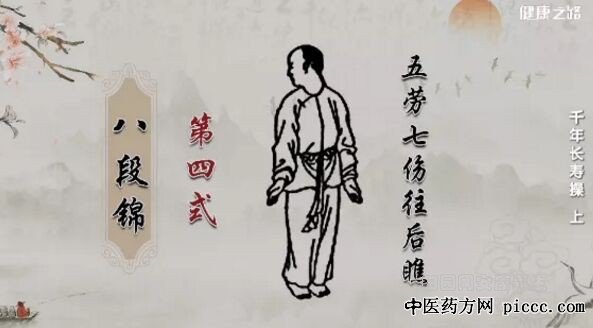 健康之路
千年长寿操 上
五劳七伤往后瞧
第四式
八段锦
中医药方网 piccc.com